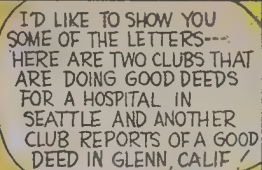 I'D LIKE TO SHOW YOU
SOME OF THE LETTERS---
HERE ARE TWO CLUBS THAT
ARE DOING GOOD DEEDS
FOR A HOSPITAL IN
SEATTLE AND ANOTHER
CLUB REPORTS OF A GOOD
DEED IN GLENN, CALIF!